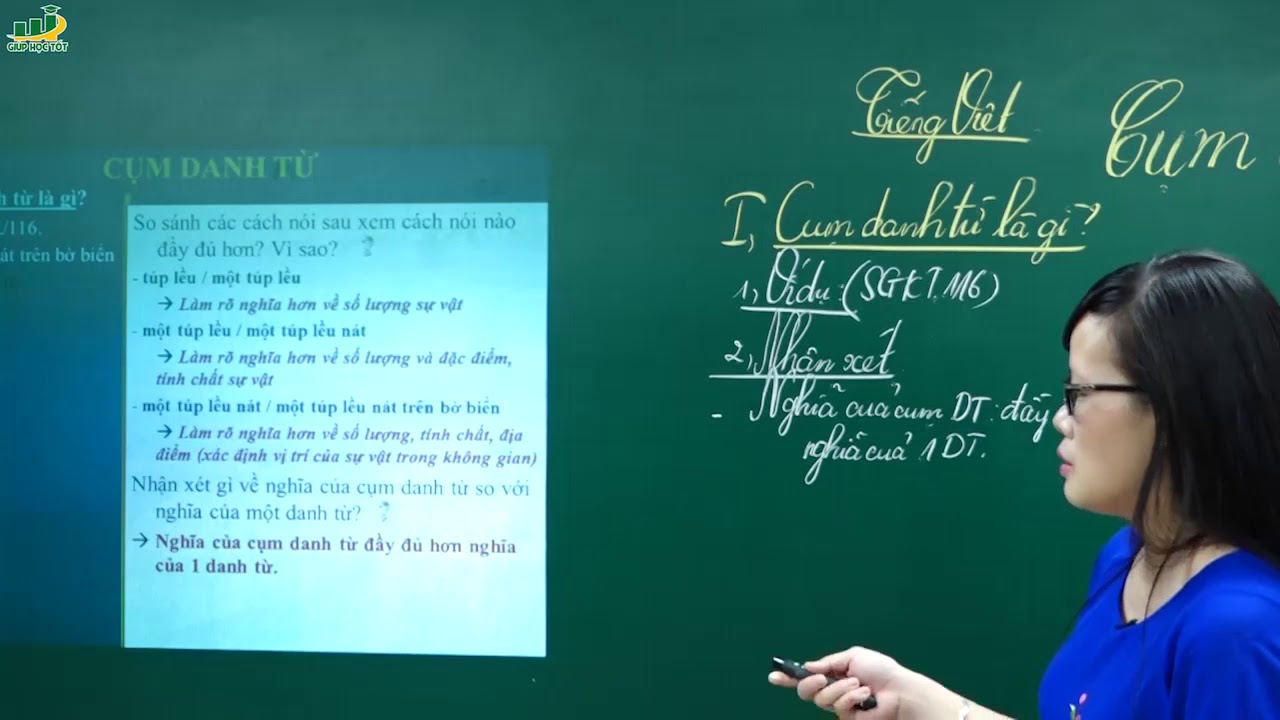 GIÚP HỌC TỐT
CỤM DANH TỪ
từ là gì?
/116.
át trên bờ biển
So sánh các cách nói sau xem cách nói nào
đầy đủ hơn? Vì sao? ?
- túp lều / một túp lều
→ Làm rõ nghĩa hơn về số lượng sự vật
- một túp lều / một túp lều nát
→ Làm rõ nghĩa hơn về số lượng và đặc điểm,
tính chất sự vật
- một túp lều nát / một túp lều nát trên bờ biển
→ Làm rõ nghĩa hơn về số lượng, tính chất, địa
điểm (xác định vị trí của sự vật trong không gian)
Nhận xét gì về nghĩa của cụm danh từ so với
nghĩa của một danh từ? ?
→ Nghĩa của cụm danh từ đầy đủ hơn nghĩa
của 1 danh từ.
Tiếng Việt
Cụm
I, Cụm danh từ là gì?
1, Ví dụ: (SGK T.116)
2, Nhận xét
- Nghĩa của cụm DT: đầy
nghĩa của 1 DT.